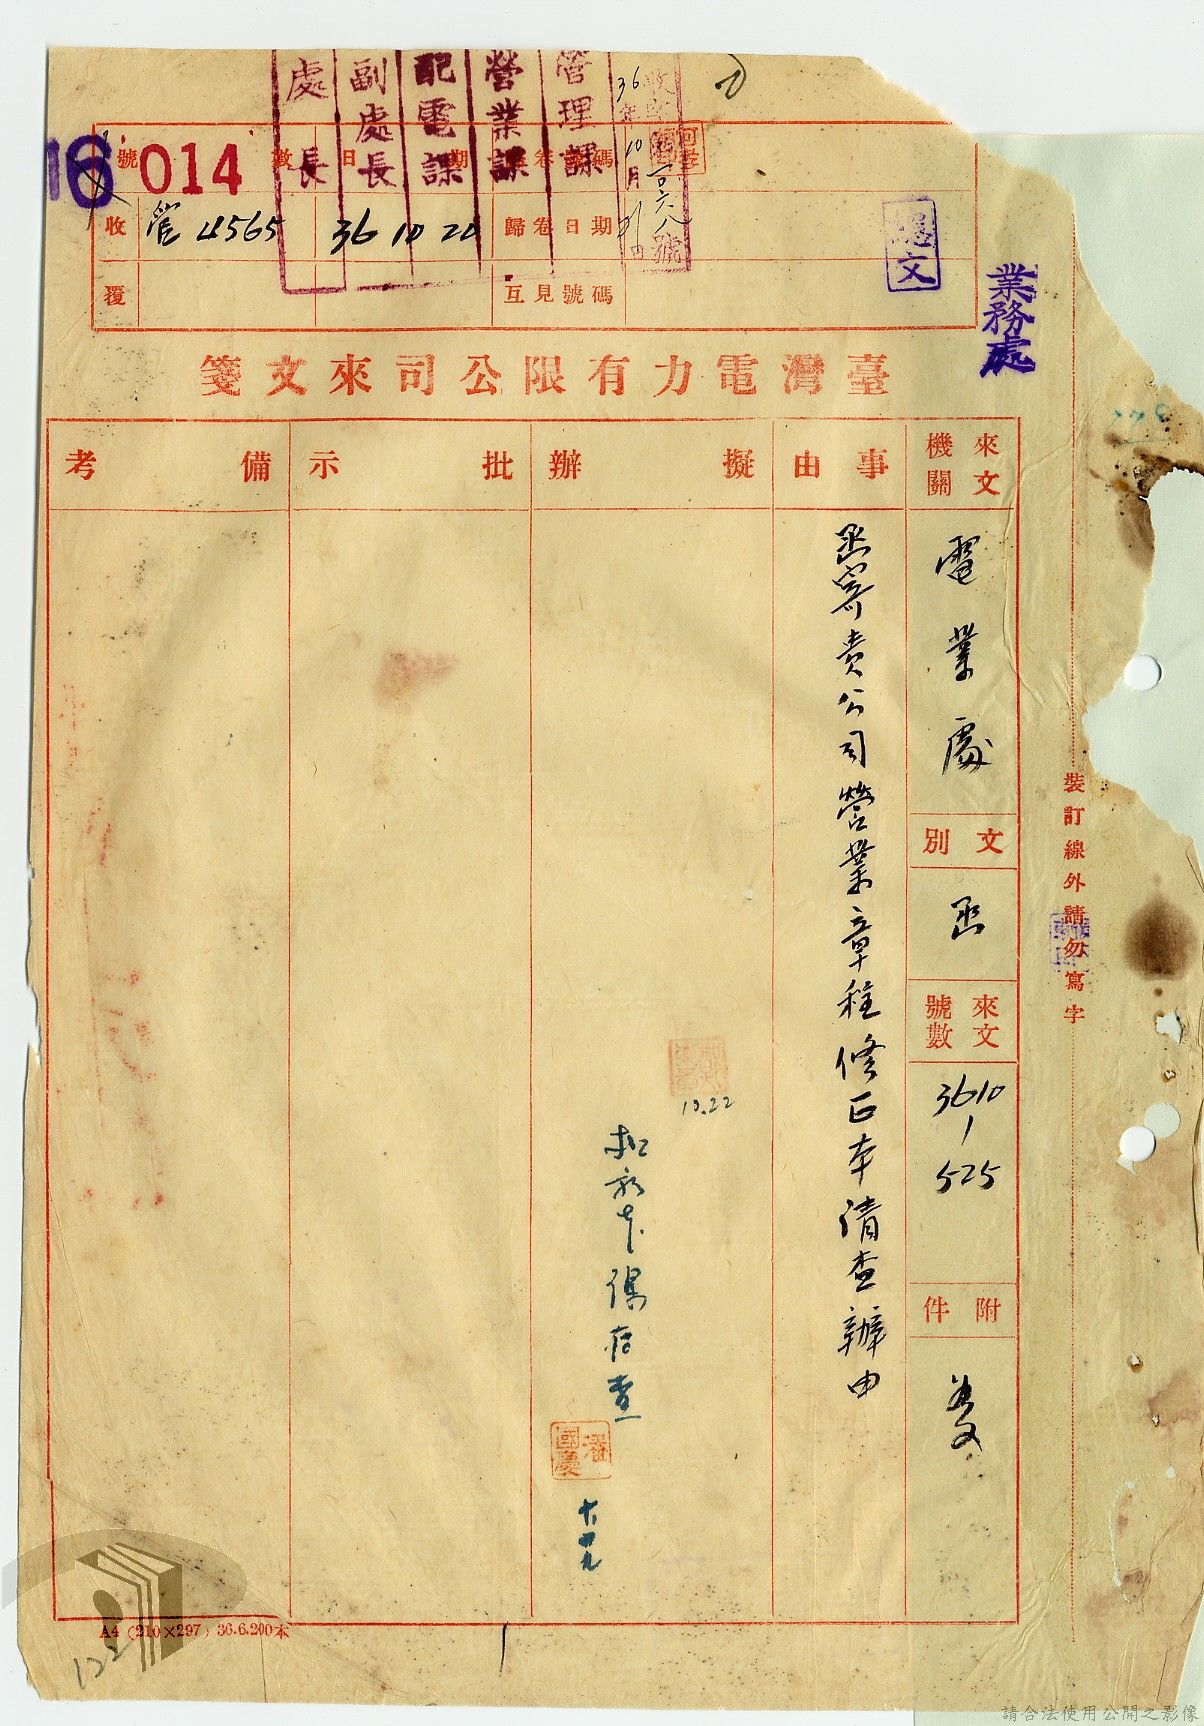 處長
副處長
配電課
營業課
管理課
36年10月21日
號
16
014
號數
日期
卷
碼
收
管 4565
36 10 22
歸卷日期
覆
互見號碼
總文
業務處
臺灣電力有限公司來文箋
來文機關
事由
擬辦
批示
備考
電業處
文別
函
來文號數
3610
525
附件
函寄貴公司營業章程修正本請查辦由
10.22
存查
潘國慶
裝訂線外請勿寫字
A4 (210×297) 36.6.200本
122
請合法使用公開之影像